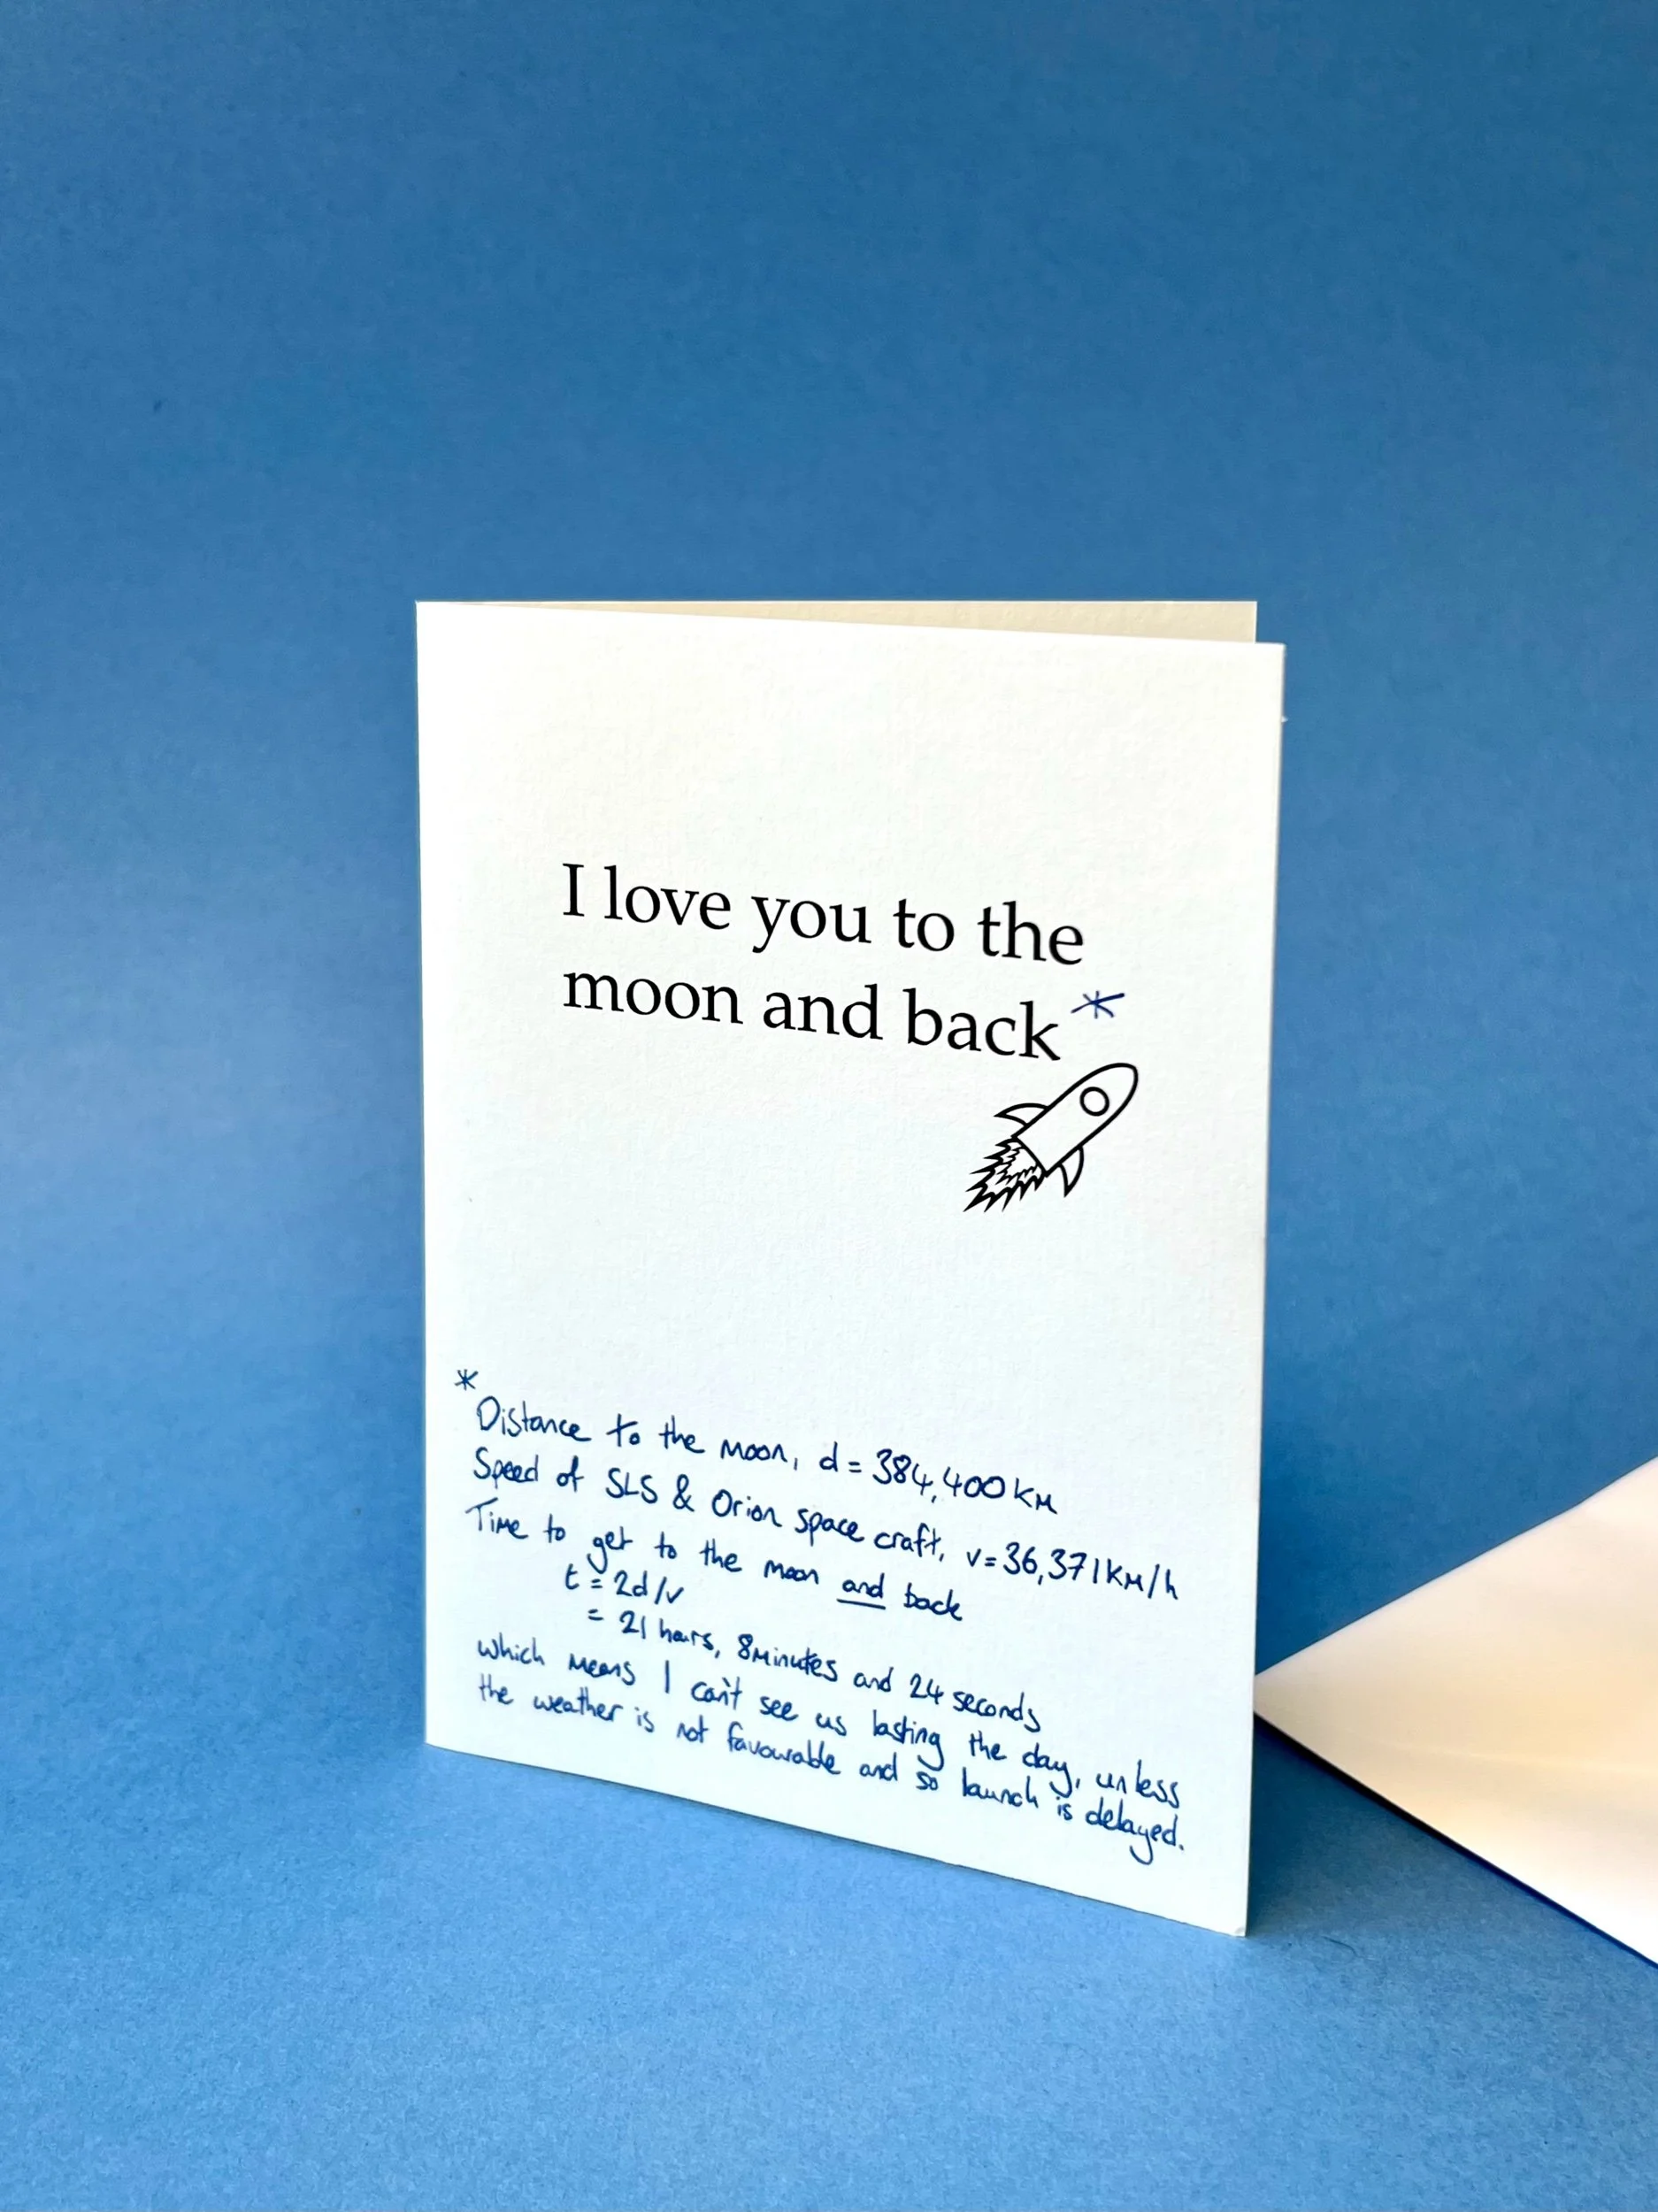 I love you to the
moon and back*
*
Distance to the moon, d = 384,400 km
Speed of SLS & Orion space craft, v = 36,371 km/h
Time to get to the moon and back
t = 2d/v
= 21 hours, 8 minutes and 24 seconds
which means I can't see us lasting the day, unless
the weather is not favourable and so launch is delayed.